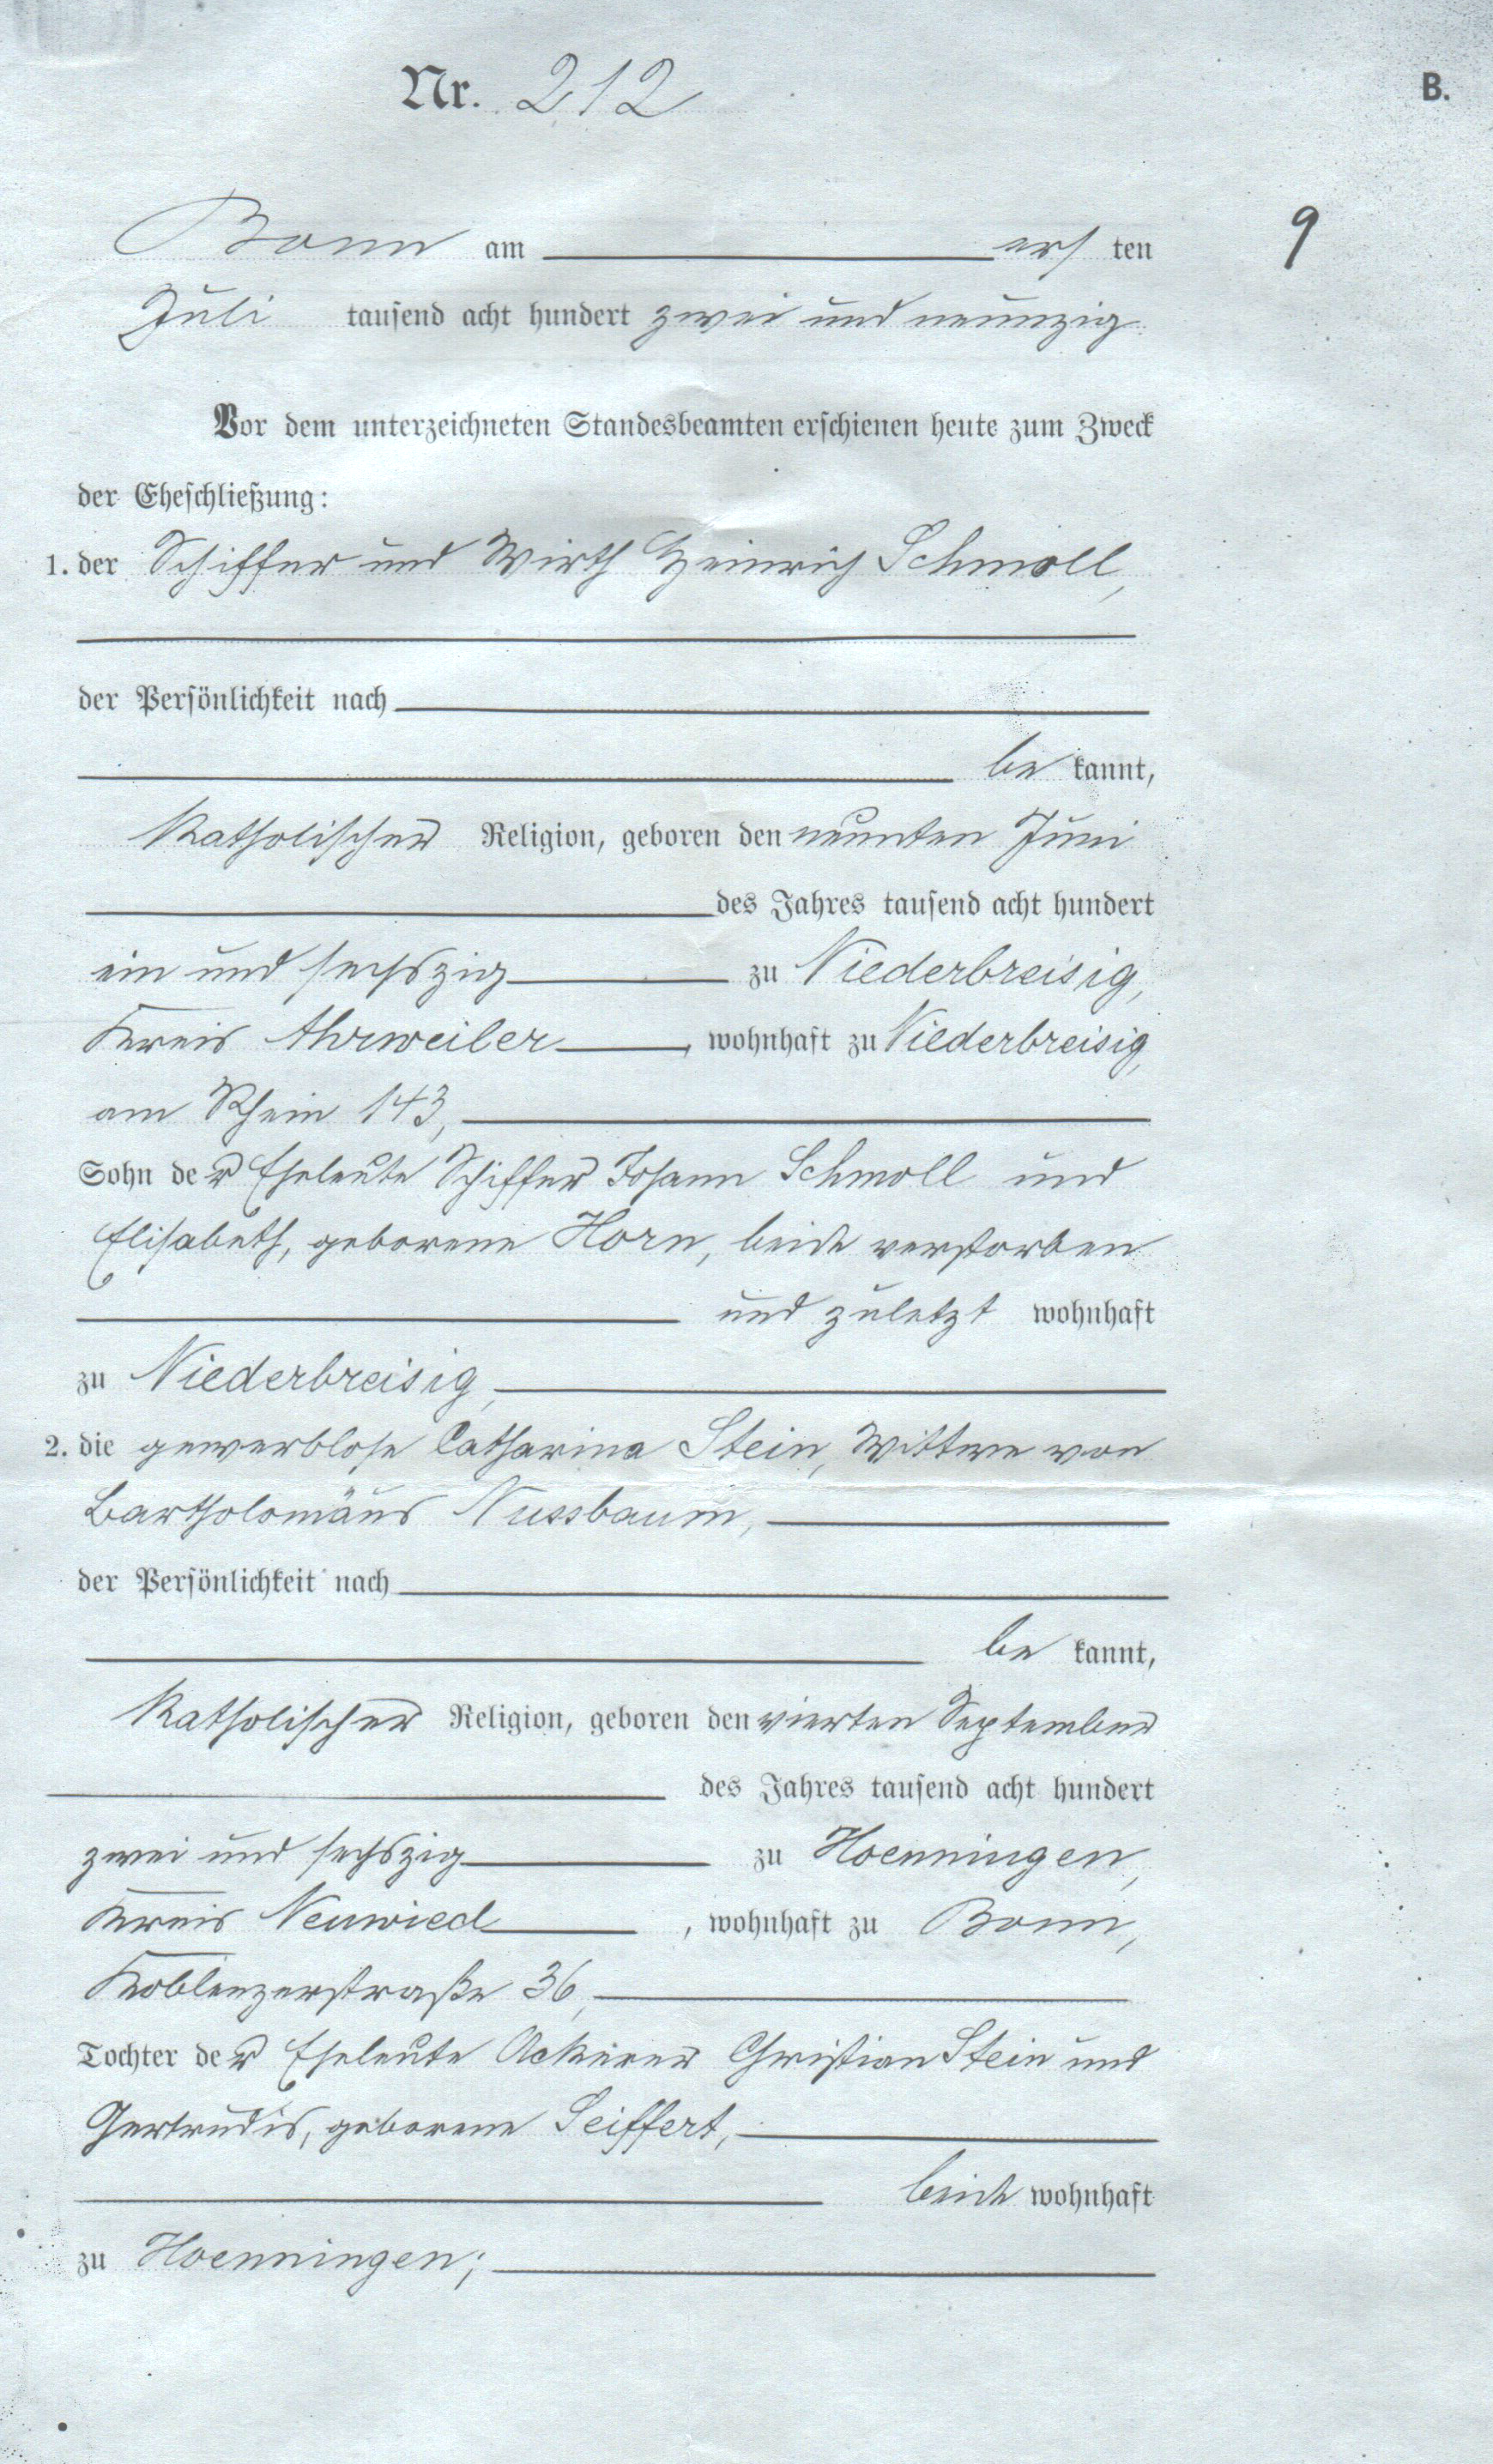 Nr. 212
B.
9
Bonn am ersten
Juli tausend acht hundert zwei und neunzig.
Vor dem unterzeichneten Standesbeamten erschienen heute zum Zweck
der Eheschließung:
1. der Schiffer und Wirth Heinrich Schmoll,
der Persönlichkeit nach
bekannt,
katholischer Religion, geboren den neunten Juni
des Jahres tausend acht hundert
ein und sechszig zu Niederbreisig,
Kreis Ahrweiler, wohnhaft zu Niederbreisig,
am Rhein 143,
Sohn der Eheleute Schiffer Johann Schmoll und
Elisabeth, geborene Horn, beide verstorben
und zuletzt wohnhaft
zu Niederbreisig,
2. die gewerblose Catharina Stein, Wittwe von
Bartholomäus Nussbaum,
der Persönlichkeit nach
bekannt,
katholischer Religion, geboren den vierten September
des Jahres tausend acht hundert
zwei und sechszig zu Hoenningen,
Kreis Neuwied, wohnhaft zu Bonn,
Koblenzerstraße 36,
Tochter der Eheleute Ackerer Christian Stein und
Gertrudis, geborene Seiffert,
beide wohnhaft
zu Hoenningen;